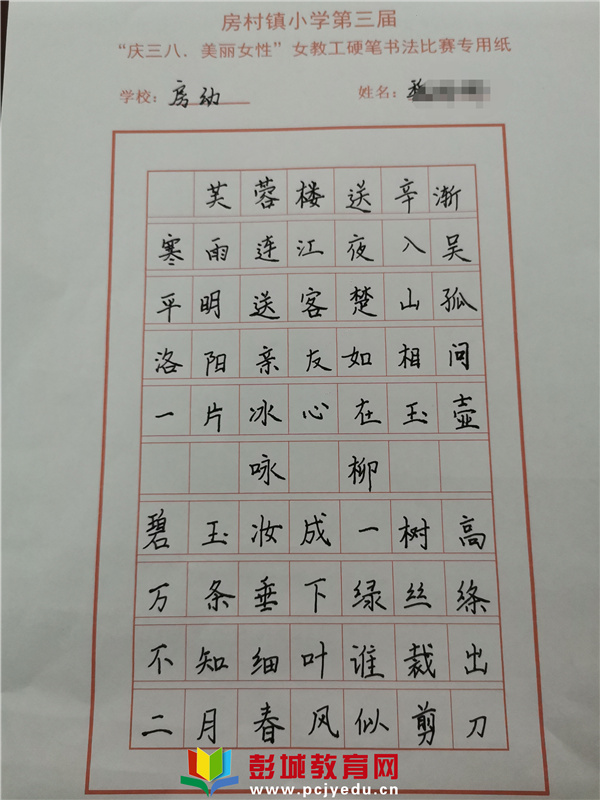 房村镇小学第三届
“庆三八．美丽女性”女教工硬笔书法比赛专用纸
学校：房幼 姓名：
芙蓉楼送辛渐
寒雨连江夜入吴
平明送客楚山孤
洛阳亲友如相问
一片冰心在玉壶
咏柳
碧玉妆成一树高
万条垂下绿丝绦
不知细叶谁裁出
二月春风似剪刀
彭城教育网
www.pcjyedu.com